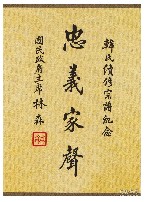 韓氏續修宗譜紀念
忠義家聲
國民政府主席林森